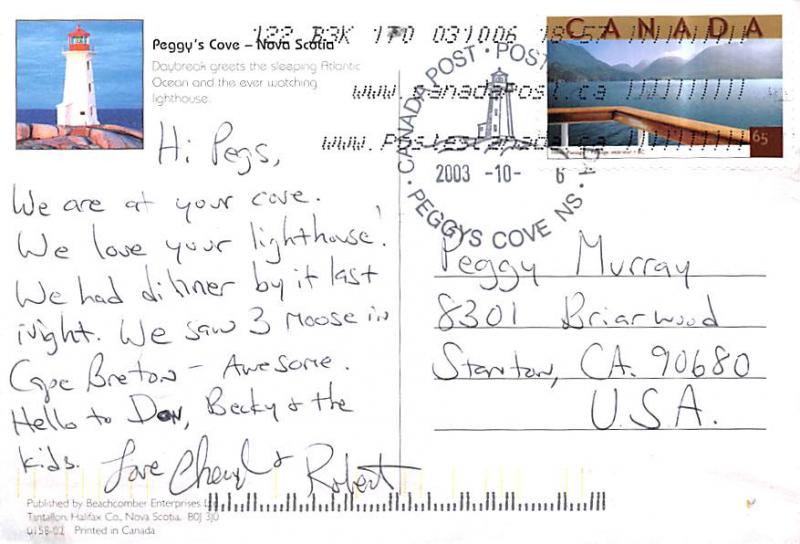 122 B3K 170 031006 18:57
CANADA
Peggy's Cove – Nova Scotia
Daybreak greets the sleeping Atlantic
Ocean and the ever watching
lighthouse.
www.canadapost.ca
www.postescanada.ca
65
CANADA POST · POST
2003 -10- 6
PEGGYS COVE NS
Hi Pegs,
We are at your cove.
We love your lighthouse!
We had dinner by it last
night. We saw 3 moose in
Cape Breton – Awesome.
Hello to Don, Becky & the
kids. Love Cheryl & Robert
Peggy Murray
8301 Briarwood
Stanton, CA. 90680
U.S.A.
Published by Beachcomber Enterprises
Tantallon, Halifax Co., Nova Scotia. B0J 3J0
0158-02 Printed in Canada